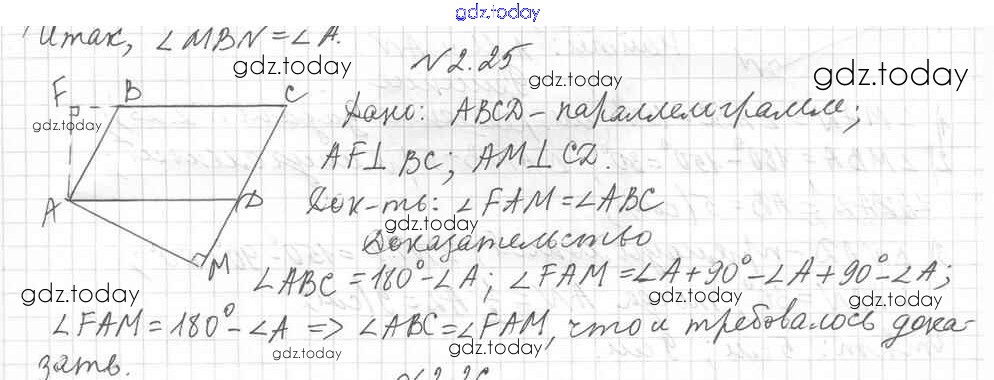 gdz.today
Итак, ∠MBN = ∠A.
gdz.today
N2.25
gdz.today
gdz.today
F B C
gdz.today
A D
M
Дано: ABCD – параллелограмм;
AF⊥BC; AM⊥CD.
gdz.today
Док-ть: ∠FAM = ∠ABC
gdz.today
Доказательство
∠ABC = 180° - ∠A; ∠FAM = ∠A + 90° - ∠A + 90° - ∠A;
gdz.today
gdz.today
gdz.today
∠FAM = 180° - ∠A => ∠ABC = ∠FAM, что и требовалось дока-
зать.
gdz.today
gdz.today
gdz.today